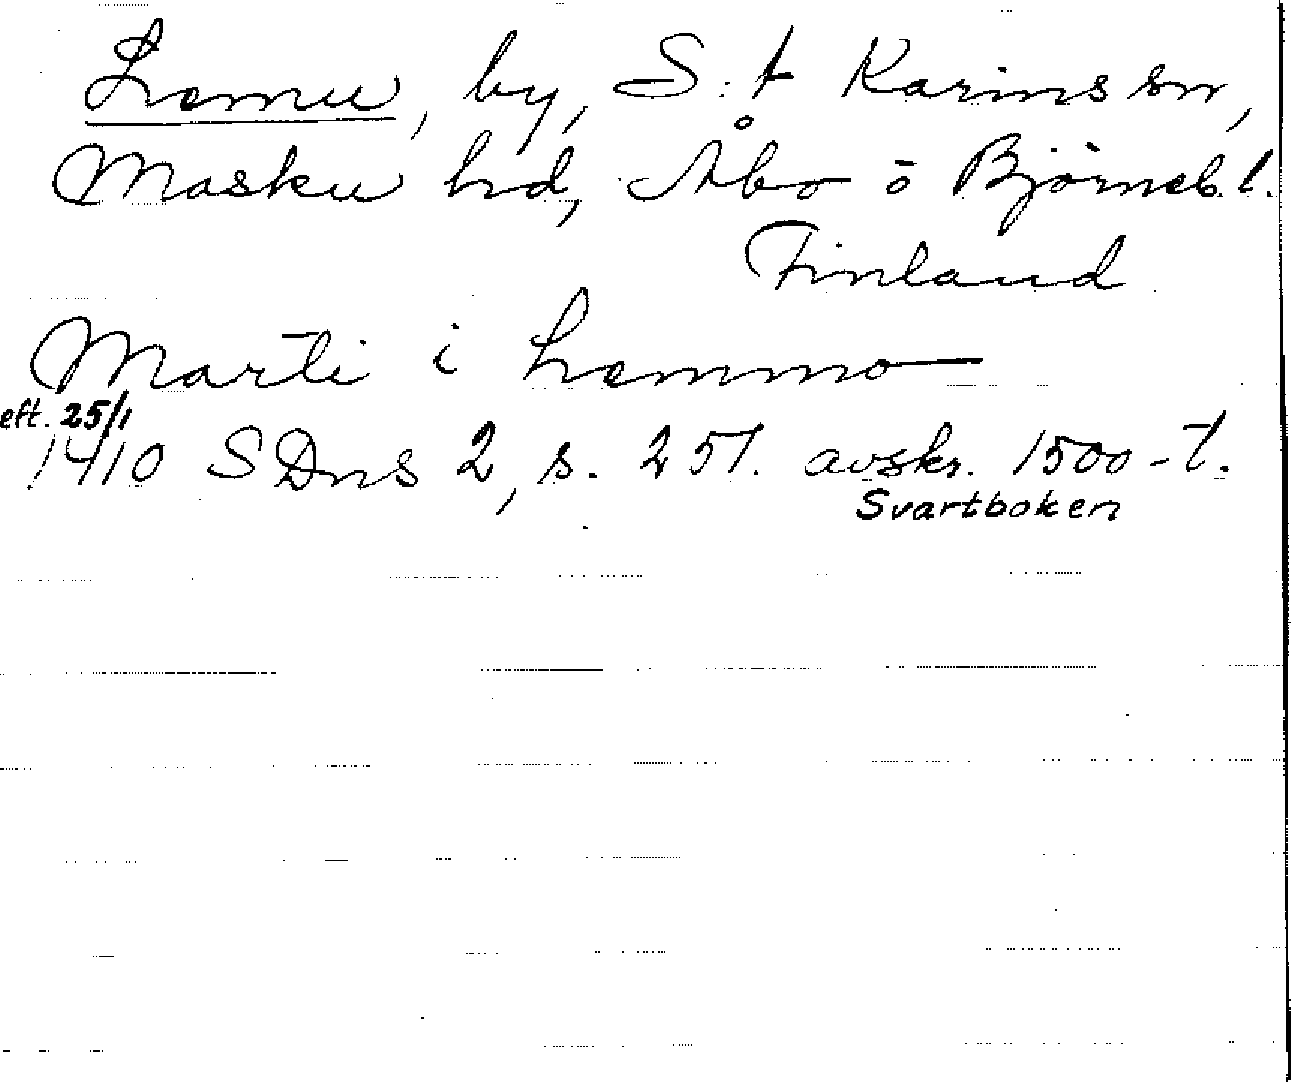 Lemu, by, S:t Karins sn,
Masku hd, Åbo o Björneb. l.
Finland
Marti i Lemmo
eft. 25/1
1410 SDns 2, s. 251. avskr. 1500-t.
Svartboken